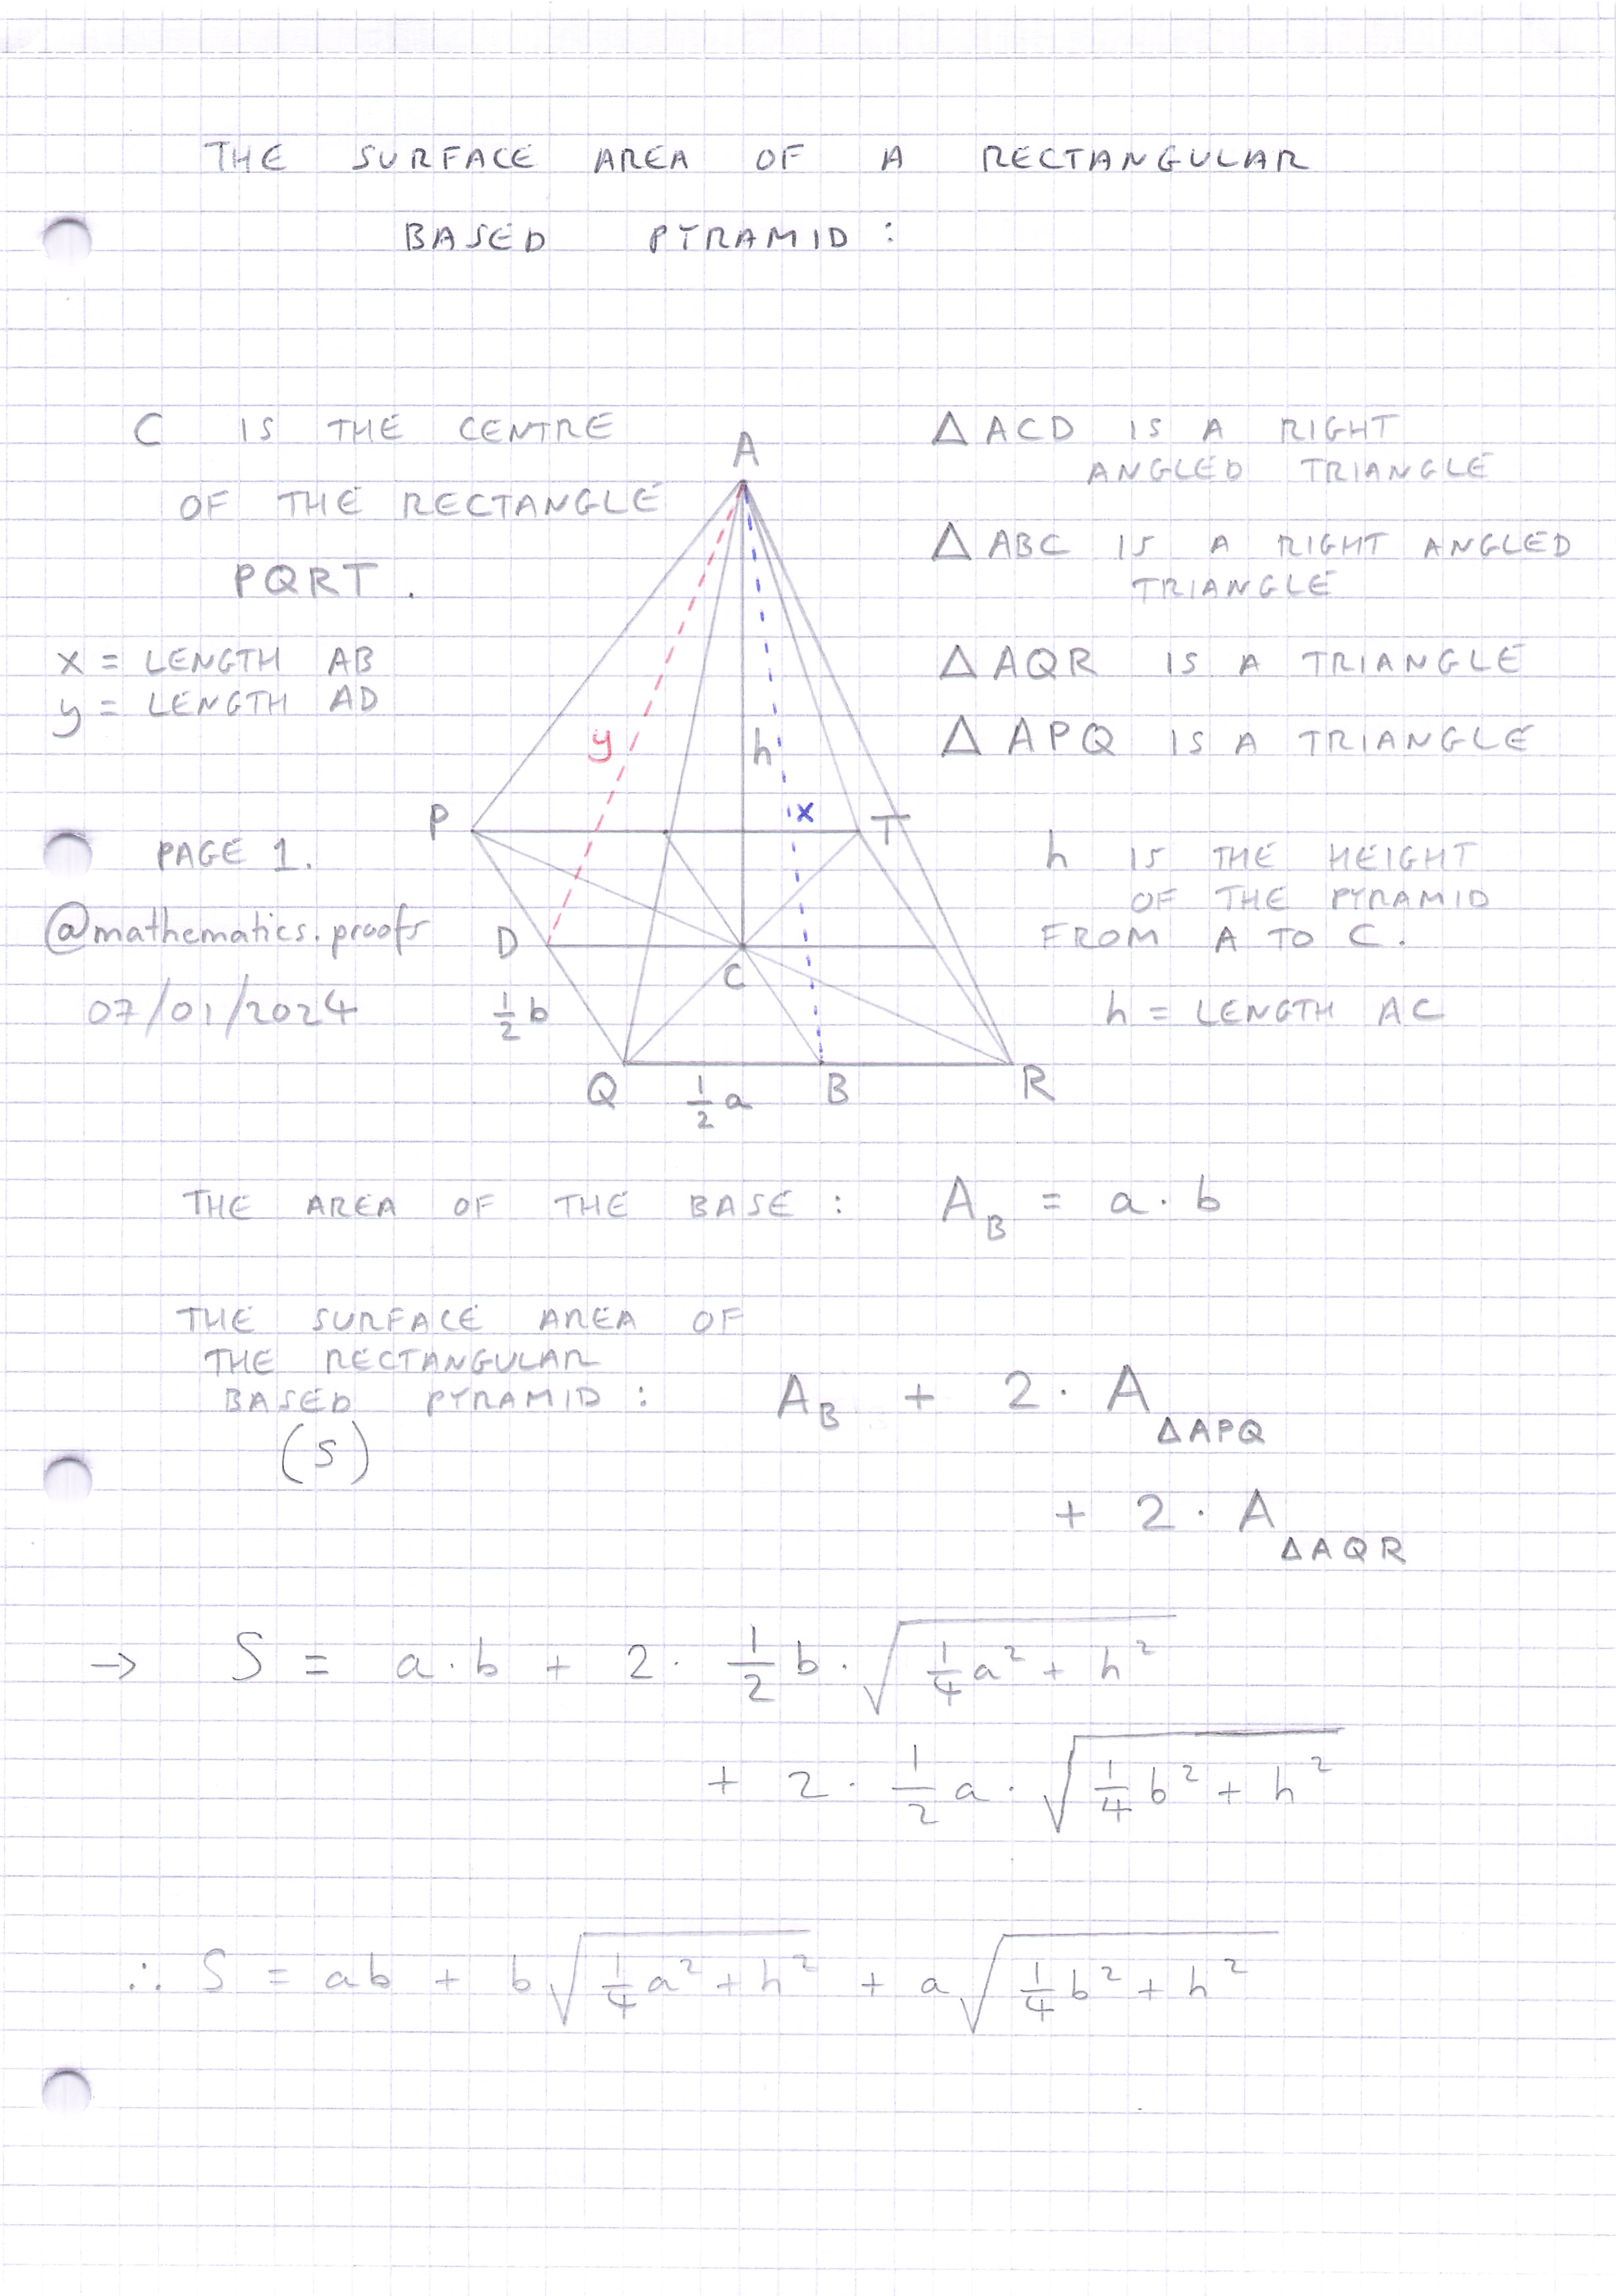 THE SURFACE AREA OF A RECTANGULAR
BASED PYRAMID :
C IS THE CENTRE
OF THE RECTANGLE
PQRT .
x = LENGTH AB
y = LENGTH AD
PAGE 1.
@mathematics.proofs
07/01/2024
A
y
h
x
P
T
D
C
½ b
Q
½ a
B
R
△ ACD IS A RIGHT
ANGLED TRIANGLE
△ ABC IS A RIGHT ANGLED
TRIANGLE
△ AQR IS A TRIANGLE
△ APQ IS A TRIANGLE
h IS THE HEIGHT
OF THE PYRAMID
FROM A TO C.
h = LENGTH AC
THE AREA OF THE BASE : A_B = a · b
THE SURFACE AREA OF
THE RECTANGULAR
BASED PYRAMID : A_B + 2 · A_△APQ
(S)
+ 2 · A_△AQR
→ S = a · b + 2 · ½ b · √(¼a² + h²)
+ 2 · ½ a · √(¼b² + h²)
∴ S = ab + b√(¼a² + h²) + a√(¼b² + h²)